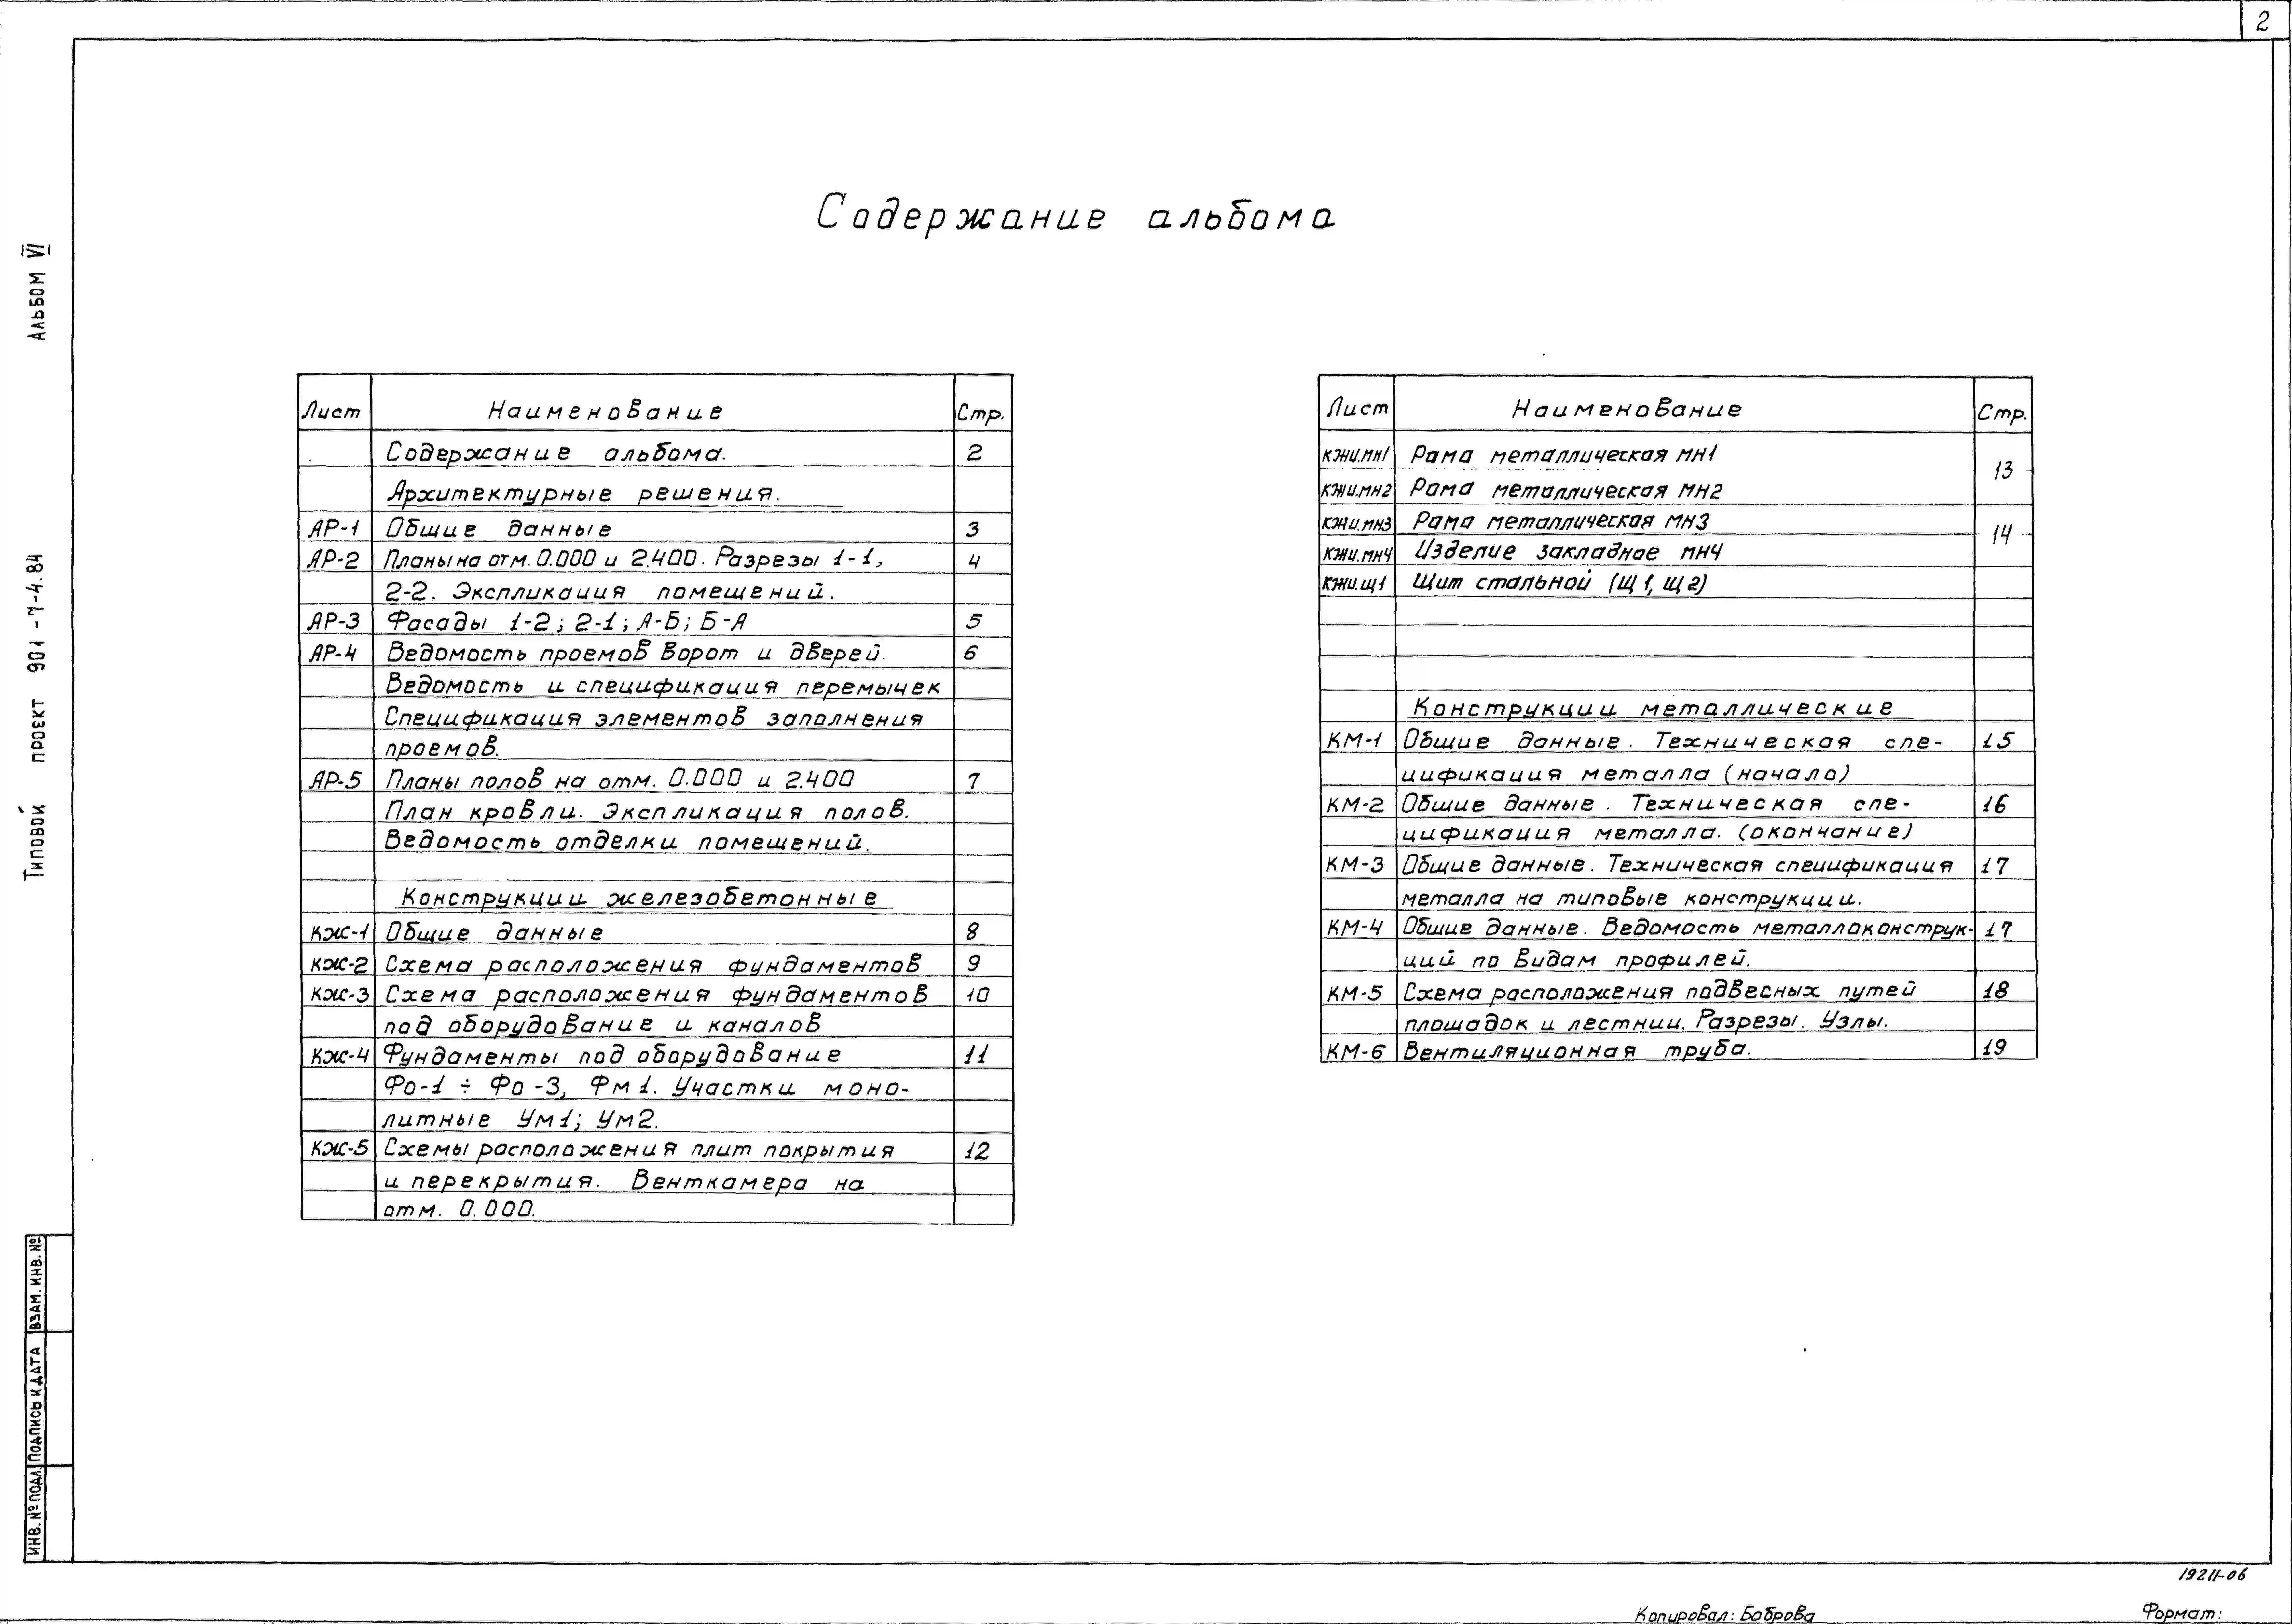 2
Содержание альбома
Альбом VI
Типовой проект 901-7-4.84
Лист Наименование Стр.
Содержание альбома. 2
Архитектурные решения.
АР-1 Общие данные 3
АР-2 Планы на отм. 0.000 и 2.400. Разрезы 1-1, 4
2-2. Экспликация помещений.
АР-3 Фасады 1-2; 2-1; А-Б; Б-А 5
АР-4 Ведомость проемов ворот и дверей. 6
Ведомость и спецификация перемычек
Спецификация элементов заполнения
проемов.
АР-5 Планы полов на отм. 0.000 и 2.400 7
План кровли. Экспликация полов.
Ведомость отделки помещений.
Конструкции железобетонные
КЖ-1 Общие данные 8
КЖ-2 Схема расположения фундаментов 9
КЖ-3 Схема расположения фундаментов 10
под оборудование и каналов
КЖ-4 Фундаменты под оборудование 11
Фо-1 ÷ Фо-3, Фм1. Участки моно-
литные Ум1; Ум2.
КЖ-5 Схемы расположения плит покрытия 12
и перекрытия. Венткамера на
отм. 0.000.
Лист Наименование Стр.
КЖИ.МН1 Рама металлическая МН1
13
КЖИ.МН2 Рама металлическая МН2
КЖИ.МН3 Рама металлическая МН3
14
КЖИ.МН4 Изделие закладное МН4
КЖИ.Щ1 Щит стальной (Щ1, Щ2)
Конструкции металлические
КМ-1 Общие данные. Техническая спе- 15
цификация металла (начало)
КМ-2 Общие данные. Техническая спе- 16
цификация металла. (окончание)
КМ-3 Общие данные. Техническая спецификация 17
металла на типовые конструкции.
КМ-4 Общие данные. Ведомость металлоконструк- 17
ций по видам профилей.
КМ-5 Схема расположения подвесных путей 18
площадок и лестниц. Разрезы. Узлы.
КМ-6 Вентиляционная труба. 19
Инв. № подл. Подпись и дата Взам. инв. №
19211-06
Копировал: Боброва Формат: